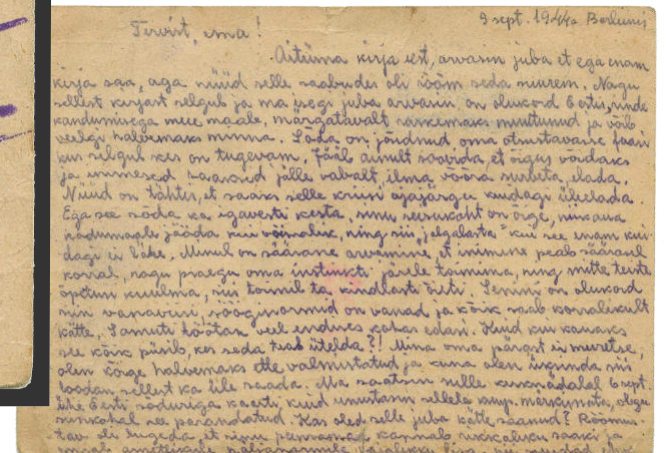 9 sept. 1944a Berliinis
Tervist, ema!
Aitüma kirja eest, arvasin juba et ega enam
kirja saa, aga nüüd selle saabudes oli rõõm seda suurem. Nagu
sellest kirjast selgub ja ma isegi juba arvasin on olukord Eestis, rinde
kandumisega meie maale, märgatavalt raskemaks muutunud ja võib
veelgi halvemaks minna. Sõda on jõudnud oma otsustavasse faasi
kus selgub kes on tugevam. Jääb ainult soovida, et õigus võidaks
ja inimesed saaksid jälle vabalt, ilma võõra surveta, elada.
Nüüd on tähtis, et saaks selle kriisi ajajärgu kuidagi üle elada.
Ega see sõda ka igavesti kesta, sinu seisukoht on õige, niikaua
kodumaale jääda kui võimalik, ning siis "jalgalasta" kui see enam kui
dagi ei lähe. Minul on säärane arvamine, et inimene peab säärasel
korral, nagu praegu oma instinkti järele toimima, ning mitte teiste
õpetusi kuulma, siis toimib ta kindlasti õieti. Senini on olukord
siin vanaviisi, sööginormid on vanad ja kõik saab korralikult
kätte. Samuti töötan veel endises kohas edasi. Kuid kui kauaks
see kõik püsib, kes seda teab ütelda?! Mina oma pärast ei muretse,
olen kõige halvemaks ette valmistatud ja kuna olen üksinda siis
loodan sellest ka üle saada. Ma saatsin sulle kesknädalal 6 sept.
ühe Eesti sõduriga kaardi, kuid unustasin sellele kuup. märkimata, olgu
siinkohal see parandatud. Kas oled selle juba kätte saanud? Rõõmus
tav oli lugeda et sinu peenramaa kannab rikkalikku saaki ja